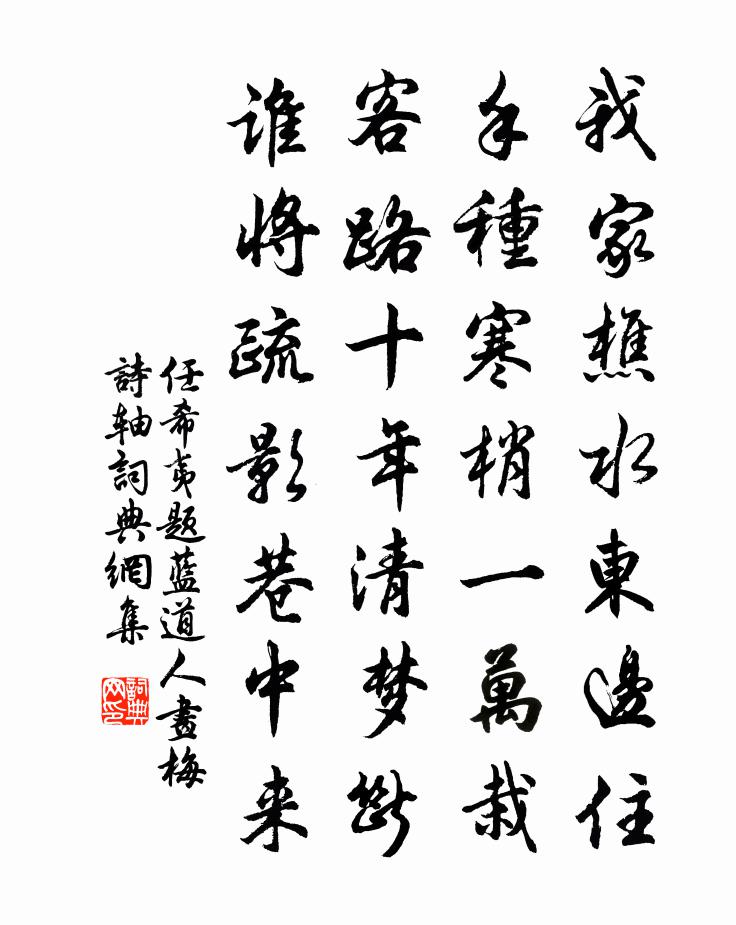 我家樵水東邊住
手種寒梢一萬栽
客路十年清梦斷
誰將疏影巷中来
任希夷題藍道人畫梅
詩轴詞典網集
詞典网印